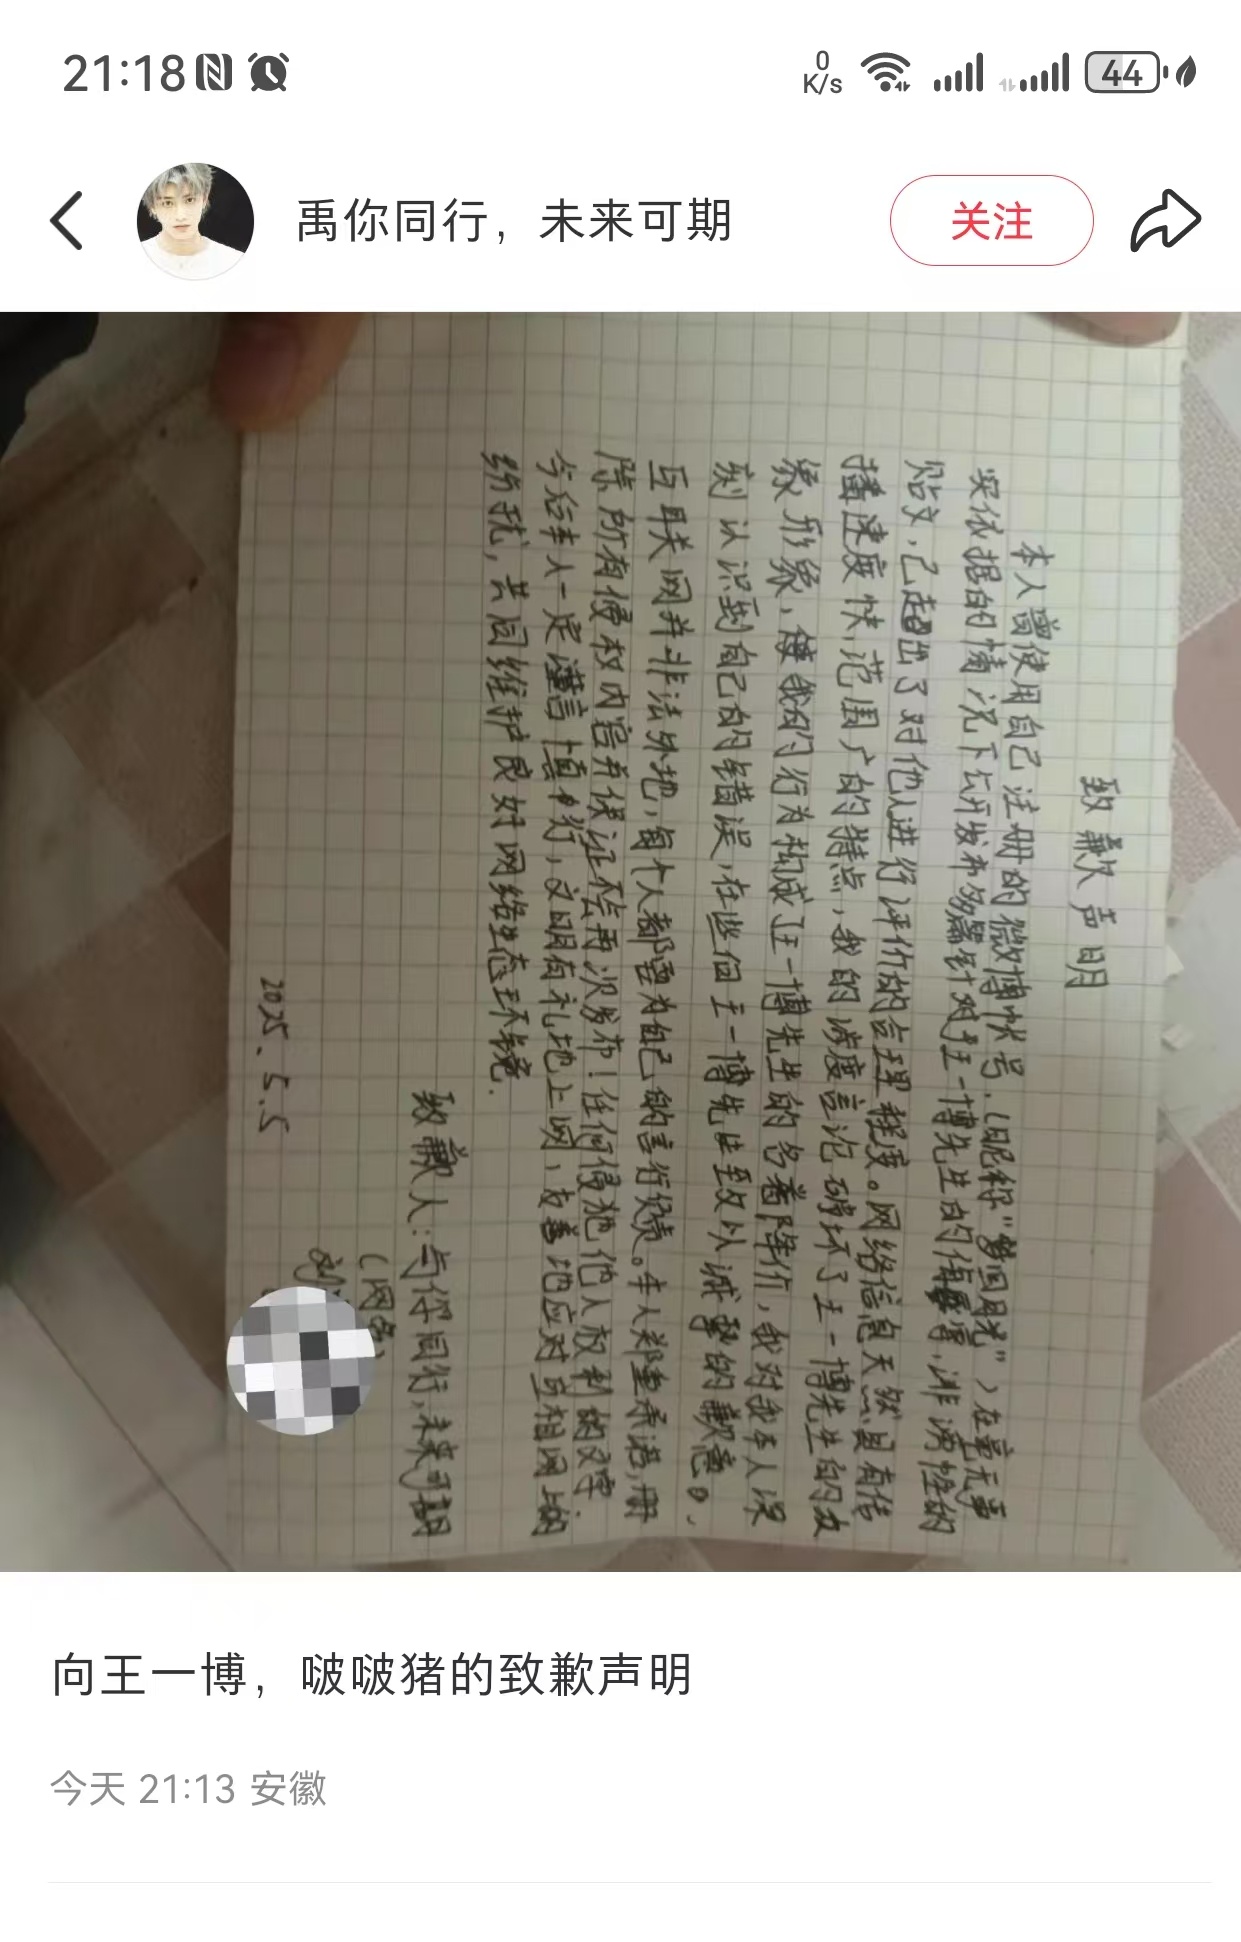 21:18
0
K/s
44
禹你同行，未来可期
关注
致歉声明
本人曾使用自己注册的微博帐号.(昵称"梦回月光")在毫无事
实依据的情况下公开发布多篇针对王一博先生的侮辱,诽谤性的
贴文,已超出了对他人进行评价的合理程度。网络信息天然具有传
播速度快,范围广的特点,我的过度言论破坏了王一博先生的
象形象,使我的行为构成了王一博先生的名誉降价,我对我本人深
刻认识到自己的错误,在此向王一博先生致以诚挚的歉意。
互联网并非法外地,每个人都需为自己的言行负责。本人郑重承诺,删
除所有侵权内容并保证不会再次发布!任何侵犯他人权利的文字.
今后本人一定谨言慎行,文明有礼地上网、友善地应对互相网上的
纷扰,共同维护良好网络生态环境.
致歉人:与你同行,未来可期
(网名)
刘
2025.5.5
向王一博，啵啵猪的致歉声明
今天 21:13 安徽